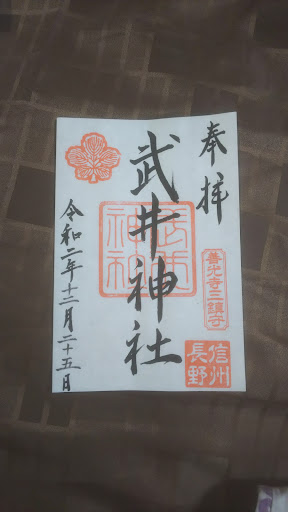 奉拝
善光寺三鎮守
信州
長野
武井神社
武井
神社
令和二年十二月二十五日